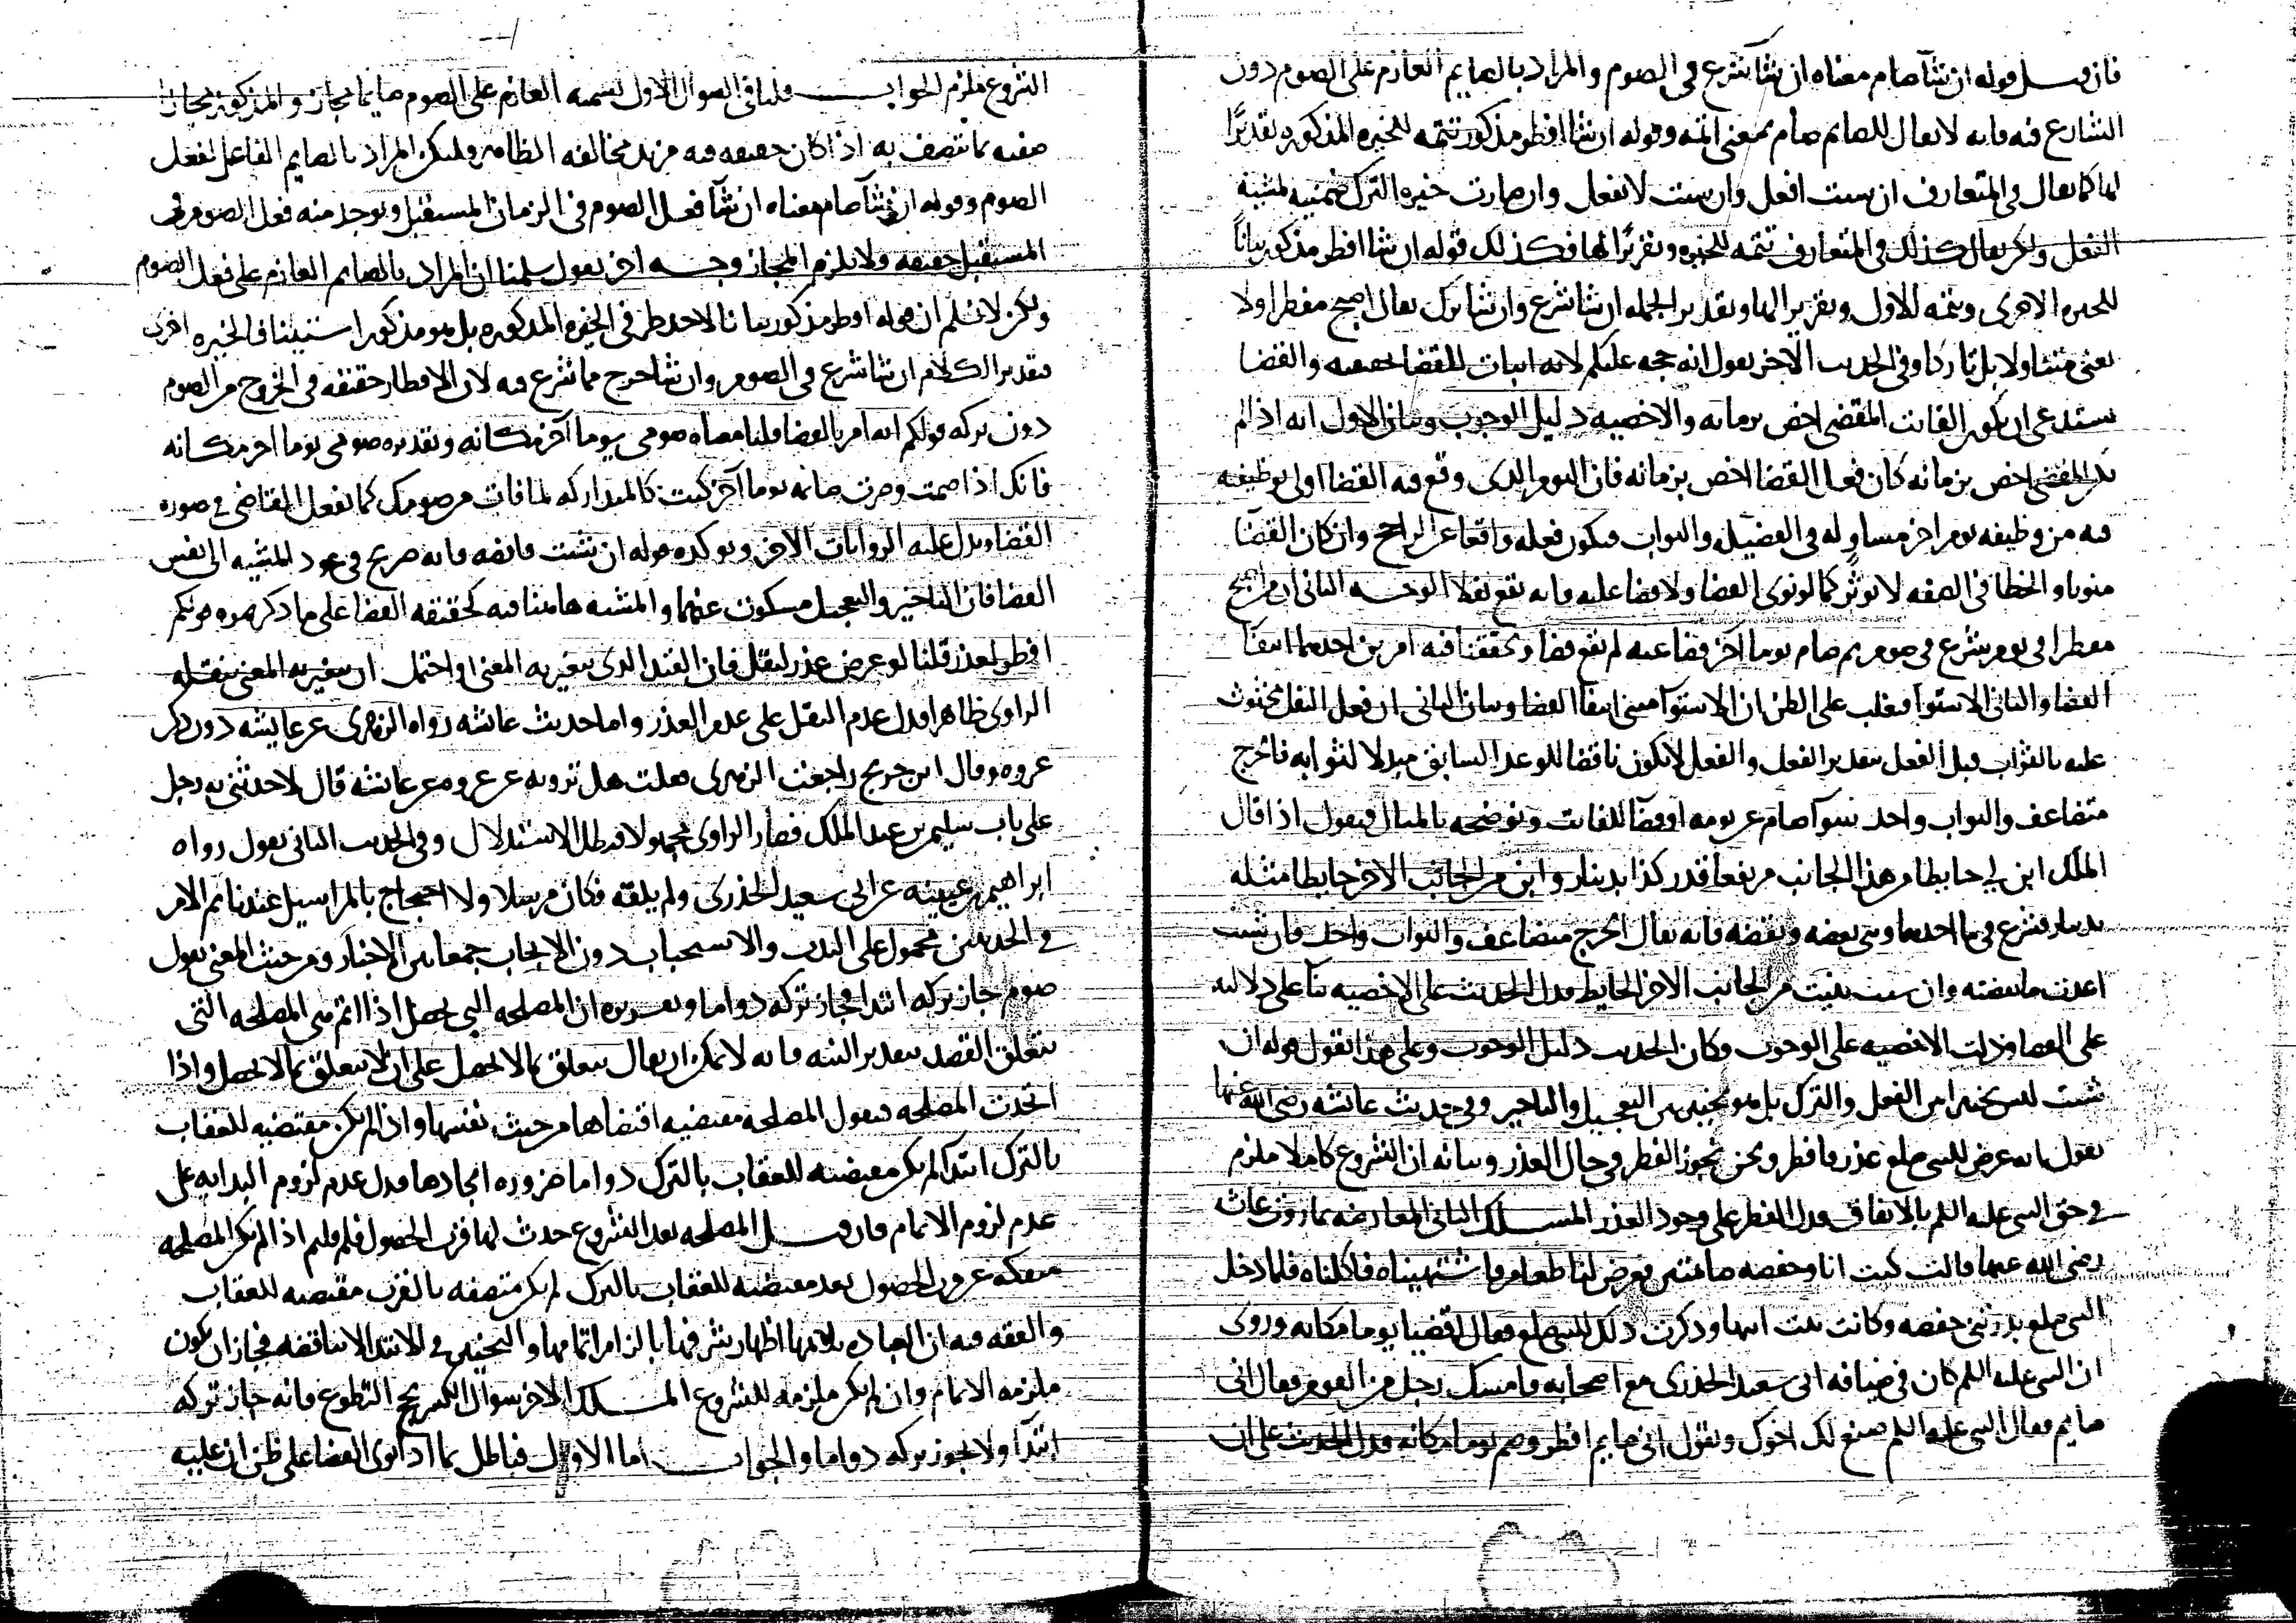 فان قيل قوله ان شآ صام معناه ان شآ شرع في الصوم والمراد بالصايم العازم على الصوم دون
الشارع فيه فانه لا يقال للصايم صام بمعنى اتمه وقوله ان شا افطر مذكور تتمه للخيره المذكوره تقديرًا
لها كما يقال في المتعارف ان شيت افعل وان شيت لا تفعل وان صارت خيره الترك ضمنيه لمشيه
الفعل ولكن يقال كذلك في المتعارف تتمه للخيره وتقريرًا لها فكذلك قوله ان شا افطر مذكور بيانًا
للخيره الاخرى وتتمه للاول وتقريرا لها وتقدير الجمله ان شا شرع وان شا ترك يقال اصبح مفطرا ولا
يعنى متناولا بل تاركا وفي الحديث الاخر نقول انه حجه عليكم لانه اثبات للقضا حقيقه والقضا
يستدعى ان يكون الفايت المقضى اخص بزمانه والاخصيه دليل الوجوب وبيان الاول انه اذا لم
يكن المقضى اخص بزمانه كان فعل القضا اخص بزمانه فان اليوم الذى وقع فيه القضا اولى بوظيفته
فيه من وظيفه يوم اخر مساو له في الفضيله والثواب فيكون فعله واقعا عن الراجح وان كان القضآ
منويا والخطا في الصفه لا يوثر كما لو نوى القضا ولا قضا عليه فانه يقع نفلا الوجه الثانى ان من اصبح
مفطرا في يوم شرع في صومه ثم صام يوما آخر قضا عنه لم يقع قضا وتحققنا فيه امرين احدهما انتفآ
القضا والثانى الاستوآ فيغلب على الظن ان الاستوآ معنى انتفآ القضا وبيان الثانى ان فعل النفل محثوث
عليه بالثواب قبل الفعل بتقدير الفعل والفعل لا يكون ناقضا للوعد السابق مبدلا لثوابه فالحرج
متضاعف والثواب واحد سوآ صام عن يومه او قضآ للفايت ونوضحه بالمثال فنقول اذا قال
الملك ابن لي حايطا من هذا الجانب مرتفعا قدر كذا بدينار وابن من الجانب الاخر حايطا مثله
بدينار فشرع في بنا احدهما وبنى بعضه ونقضه فانه يقال الحرج متضاعف والثواب واحد فان شيت
اعدت ما نقضته وان شيت بنيت من الجانب الاخر الحايط فدل الحديث على الاخصيه بنآ على دلالته
على القضا ودلت الاخصيه على الوجوب وكان الحديث دليل الوجوب وعلى هذا نقول قوله ان
شيت ليس تخييرا بين الفعل والترك بل هو تخيير بين التعجيل والتاخير وفي حديث عائشه رضى الله عنها
نقول بانه عرض للنبى صلعم عذر فافطر ونحن نجوز الفطر في حال العذر وبيانه ان الشروع كاملا ملزم
في حق النبى عليه السلم بالاتفاق فدل الفطر على وجود العذر المسلك الثانى المعارضه بما روت عائشه
رضى الله عنها قالت كنت انا وحفصه صايمتين فعرض لنا طعام فاشتهيناه فاكلناه فلما دخل
النبى صلعم بدرتنى حفصه وكانت بنت ابيها وذكرت ذلك للنبى صلعم فقال اقضيا يوما مكانه وروى
ان النبى عليه السلم كان في ضيافه ابى سعيد الخدرى مع اصحابه فامسك رجل من القوم فقال انى
صايم فقال النبى عليه السلم صنع لك اخوك وتقول انى صايم افطر وصم يوما مكانه فدل الحديث على ان
الشروع ملزم الجواب قلنا في السوال الاول تسميه العازم على الصوم صايما مجاز والمذكور مجازا
صفته ما تتصف به اذا كان حقيقه فيه مزيد مخالفه الظاهر وليكن المراد بالصايم الفاعل لفعل
الصوم وقوله ان شآ صام معناه ان شآ فعل الصوم في الزمان المستقبل ويوجد منه فعل الصوم في
المستقبل حقيقه ولا يلزم المجاز وجه اخر نقول سلمنا ان المراد بالصايم العازم على فعل الصوم
ولكن لا نسلم ان قوله افطر مذكور بيانا لاحد طرفى الخيره المذكوره بل هو مذكور استينافا لخيره اخرى
فتقدير الكلام ان شا شرع في الصوم وان شا خرج مما شرع فيه لان الافطار حقيقه في الخروج من الصوم
دون تركه قولكم انه امر بالقضا قلنا معناه صومى يوما آخر مكانه وتقديره صومى يوما اخر مكانه
فانك اذا صمت وصرت صايمه يوما آخر كنت كالمتداركه لما فات من صومك كما يفعل القاضى في صوره
القضا ويدل عليه الروايات الاخر ويوكده قوله ان شيت فاقضه فانه صريح في عود المشيه الى نفس
القضا فان التاخير والتعجيل مسكوت عنهما والمشيه هاهنا منافيه لحقيقه القضا على ما ذكرتموه قولكم
افطر لعذر قلنا لو عرض عذر لنقل فان القيد الذى يتغير به المعنى او احتمل ان يتغير به المعنى ينقله
الراوى ظاهرا فدل عدم النقل على عدم العذر واما حديث عائشه رواه الزهرى عن عايشه دون ذكر
عروه وقال ابن جريج راجعت الزهرى فقلت هل ترويه عن عروه عن عائشه قال لا حدثنى به رجل
على باب سليمن بن عبد الملك فصار الراوى مجهولا فبطل الاستدلال وفي الحديث الثانى نقول رواه
ابراهيم بن عيينه عن ابى سعيد الخدرى ولم يلقه فكان مرسلا ولا احتجاج بالمراسيل عندنا ثم الامر
في الحديثين محمول على الندب والاستحباب دون الايجاب جمعا بين الاخبار ومن حيث المعنى نقول
صوم جاز تركه ابتدا فجاز تركه دواما وتقريره ان المصلحه التى تحصل اذا اتم هى المصلحه التى
يتعلق القصد بتقدير النيه فانه لا يمكن ان يقال يتعلق بما لا يحصل على ان لا يتعلق بما لا يحصل واذا
اتحدت المصلحه فنقول المصلحه مقتضيه اقتضاها من حيث نفسها واذا لم يكن مقتضيه للعقاب
بالترك ابتدآ لم يكن مقتضيه للعقاب بالترك دواما ضروره اتحادها فدل عدم لزوم البدايه على
عدم لزوم الاتمام فان قيل المصلحه بعد الشروع حدث لها قرب الحصول فلم قلتم اذا لم يكن المصلحه
منفكه عن قرب الحصول بعد مقتضيه للعقاب بالترك لم يكن متصفه بالقرب مقتضيه للعقاب
والفقه فيه ان العباده يلايمها اظهار شرفها بالزام اتمامها والتخيير في الابتدا لا يناقضه فجاز ان يكون
ملزمه الاتمام وان لم يكن ملزمه للشروع المسلك الاخر سوال الكسر بحج التطوع فانه جاز تركه
ابتدآ ولا يجوز تركه دواما والجواب اما الاول فباطل بما اذا نوى القضا على ظن ان عليه